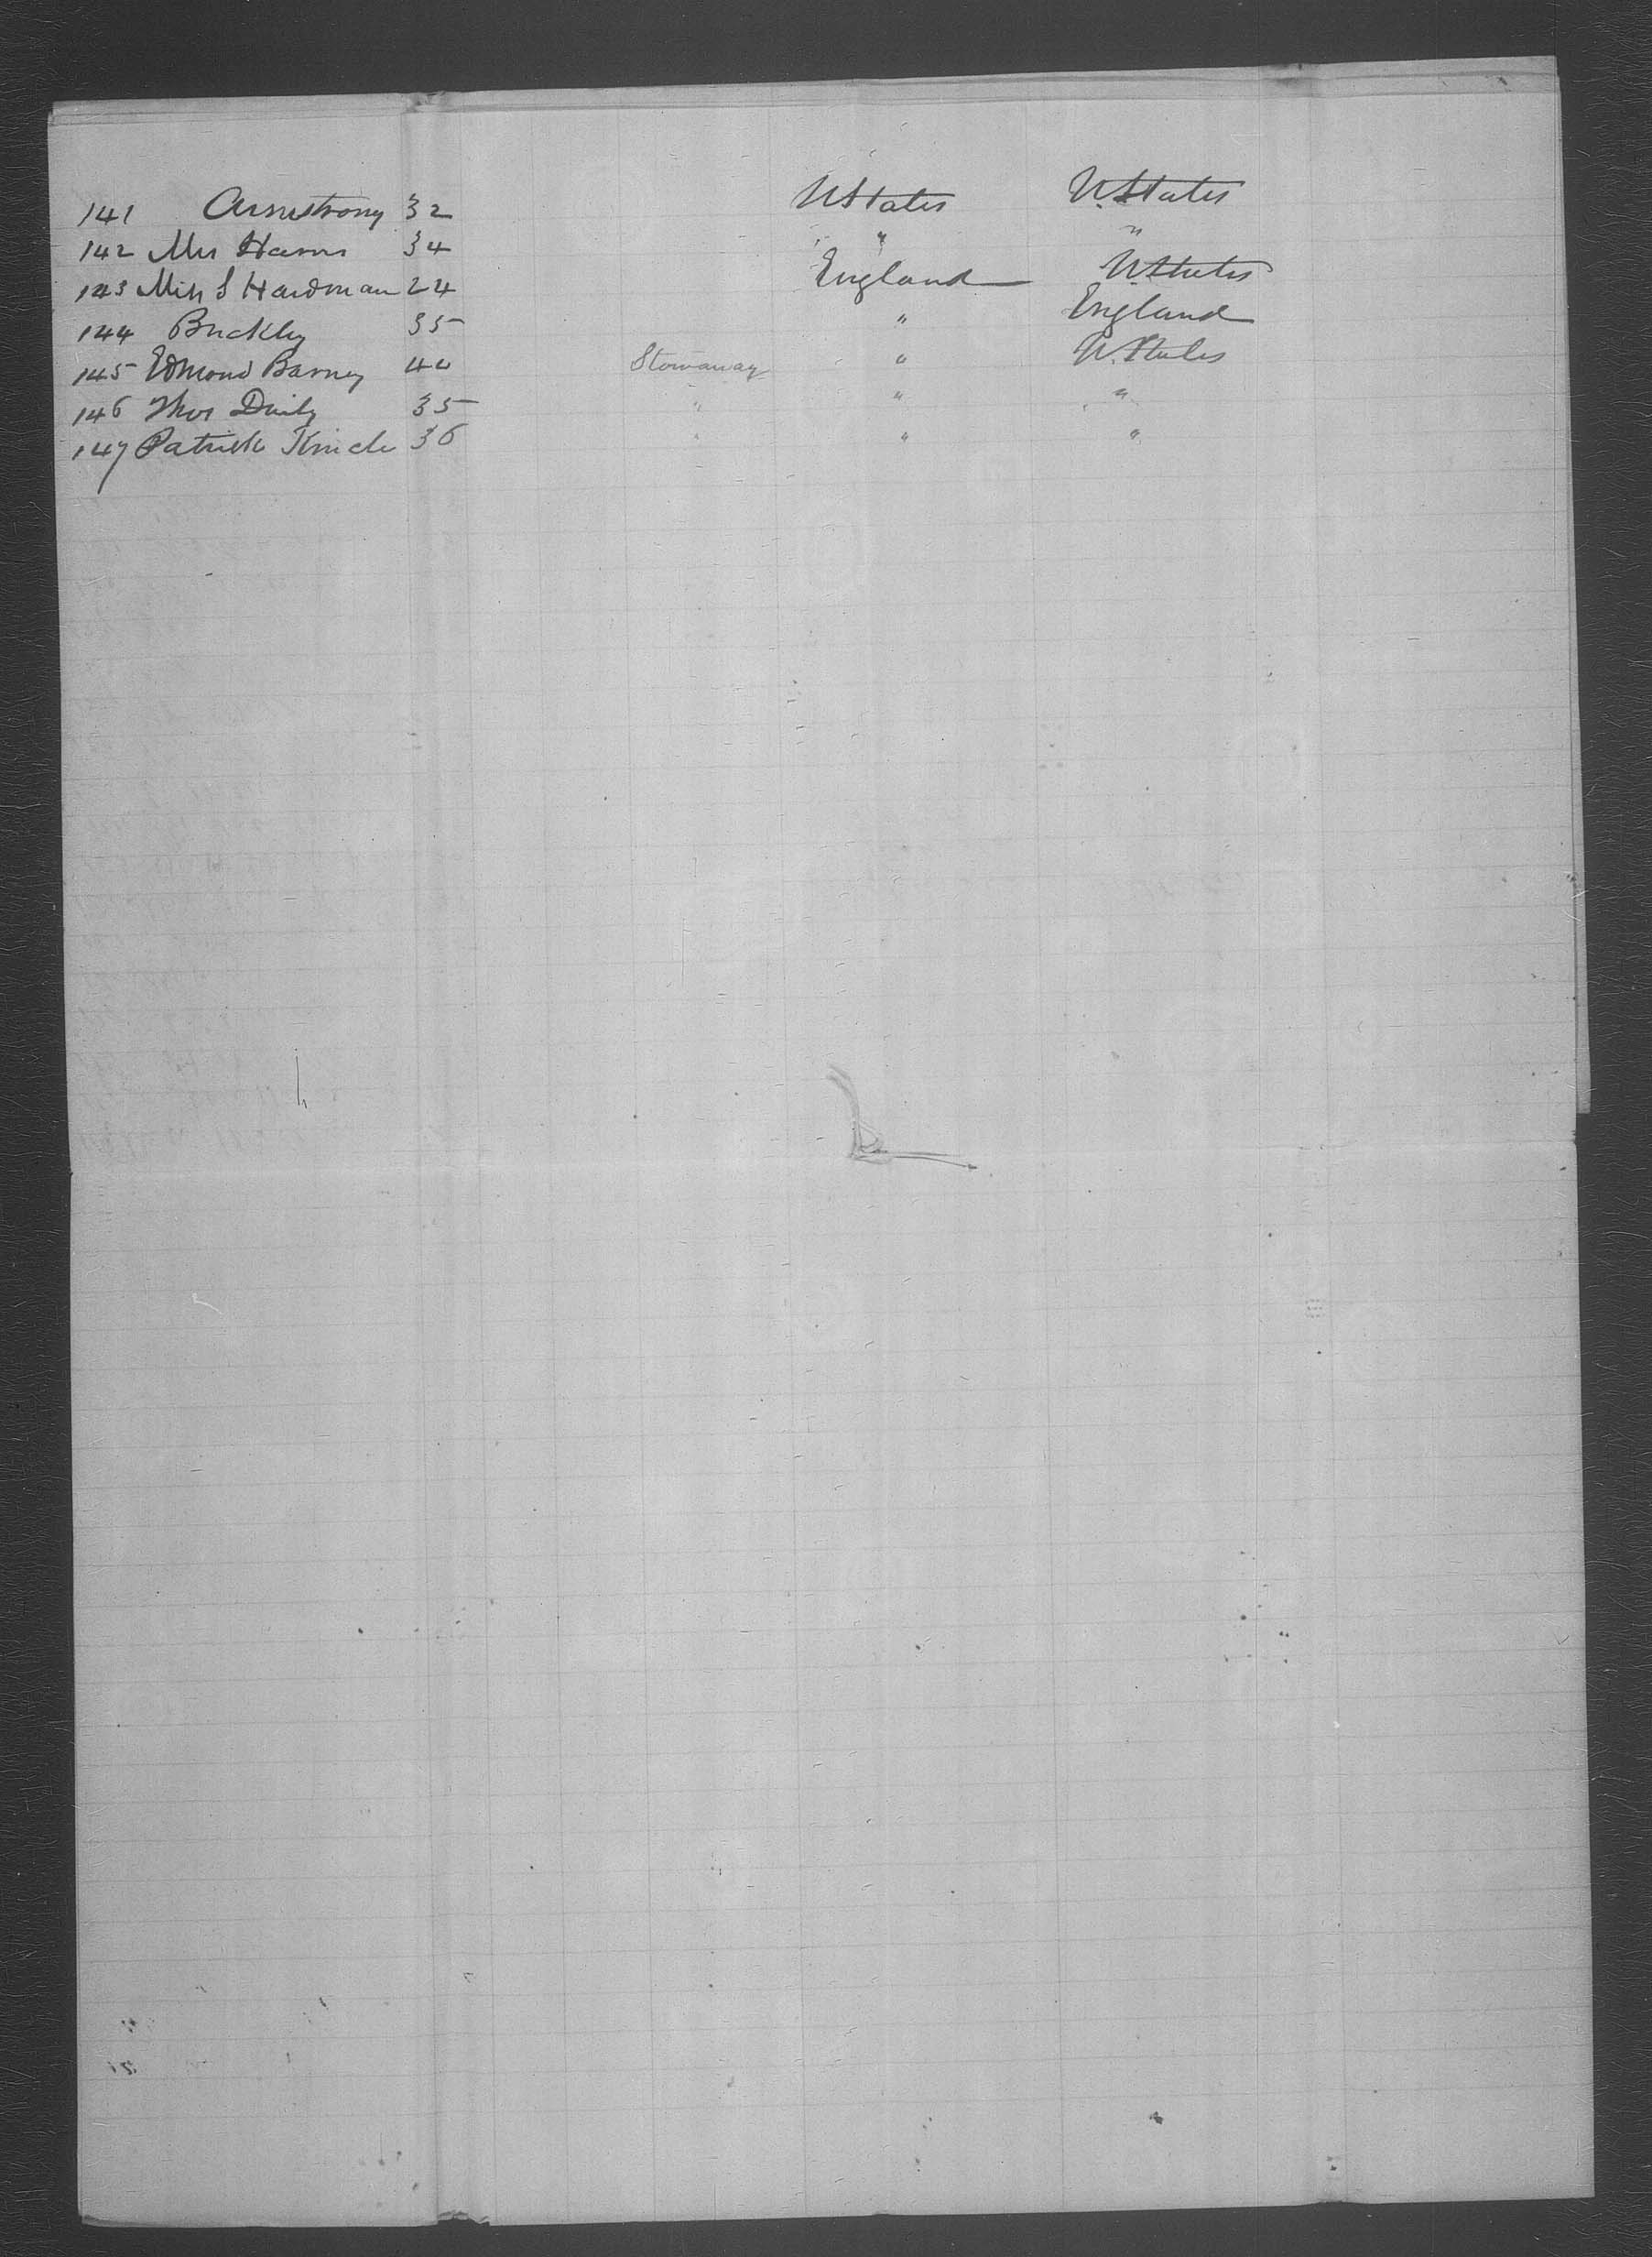 141 Armstrong 32 UStates U.States
142 Mrs Harris 34 " "
143 Miss S Hardman 24 England U.States
144 Buckley 35 " England
145 Edmond Barney 40 Stowaway " U.States
146 Thos Daily 35 " " "
147 Patrick 36 " " "